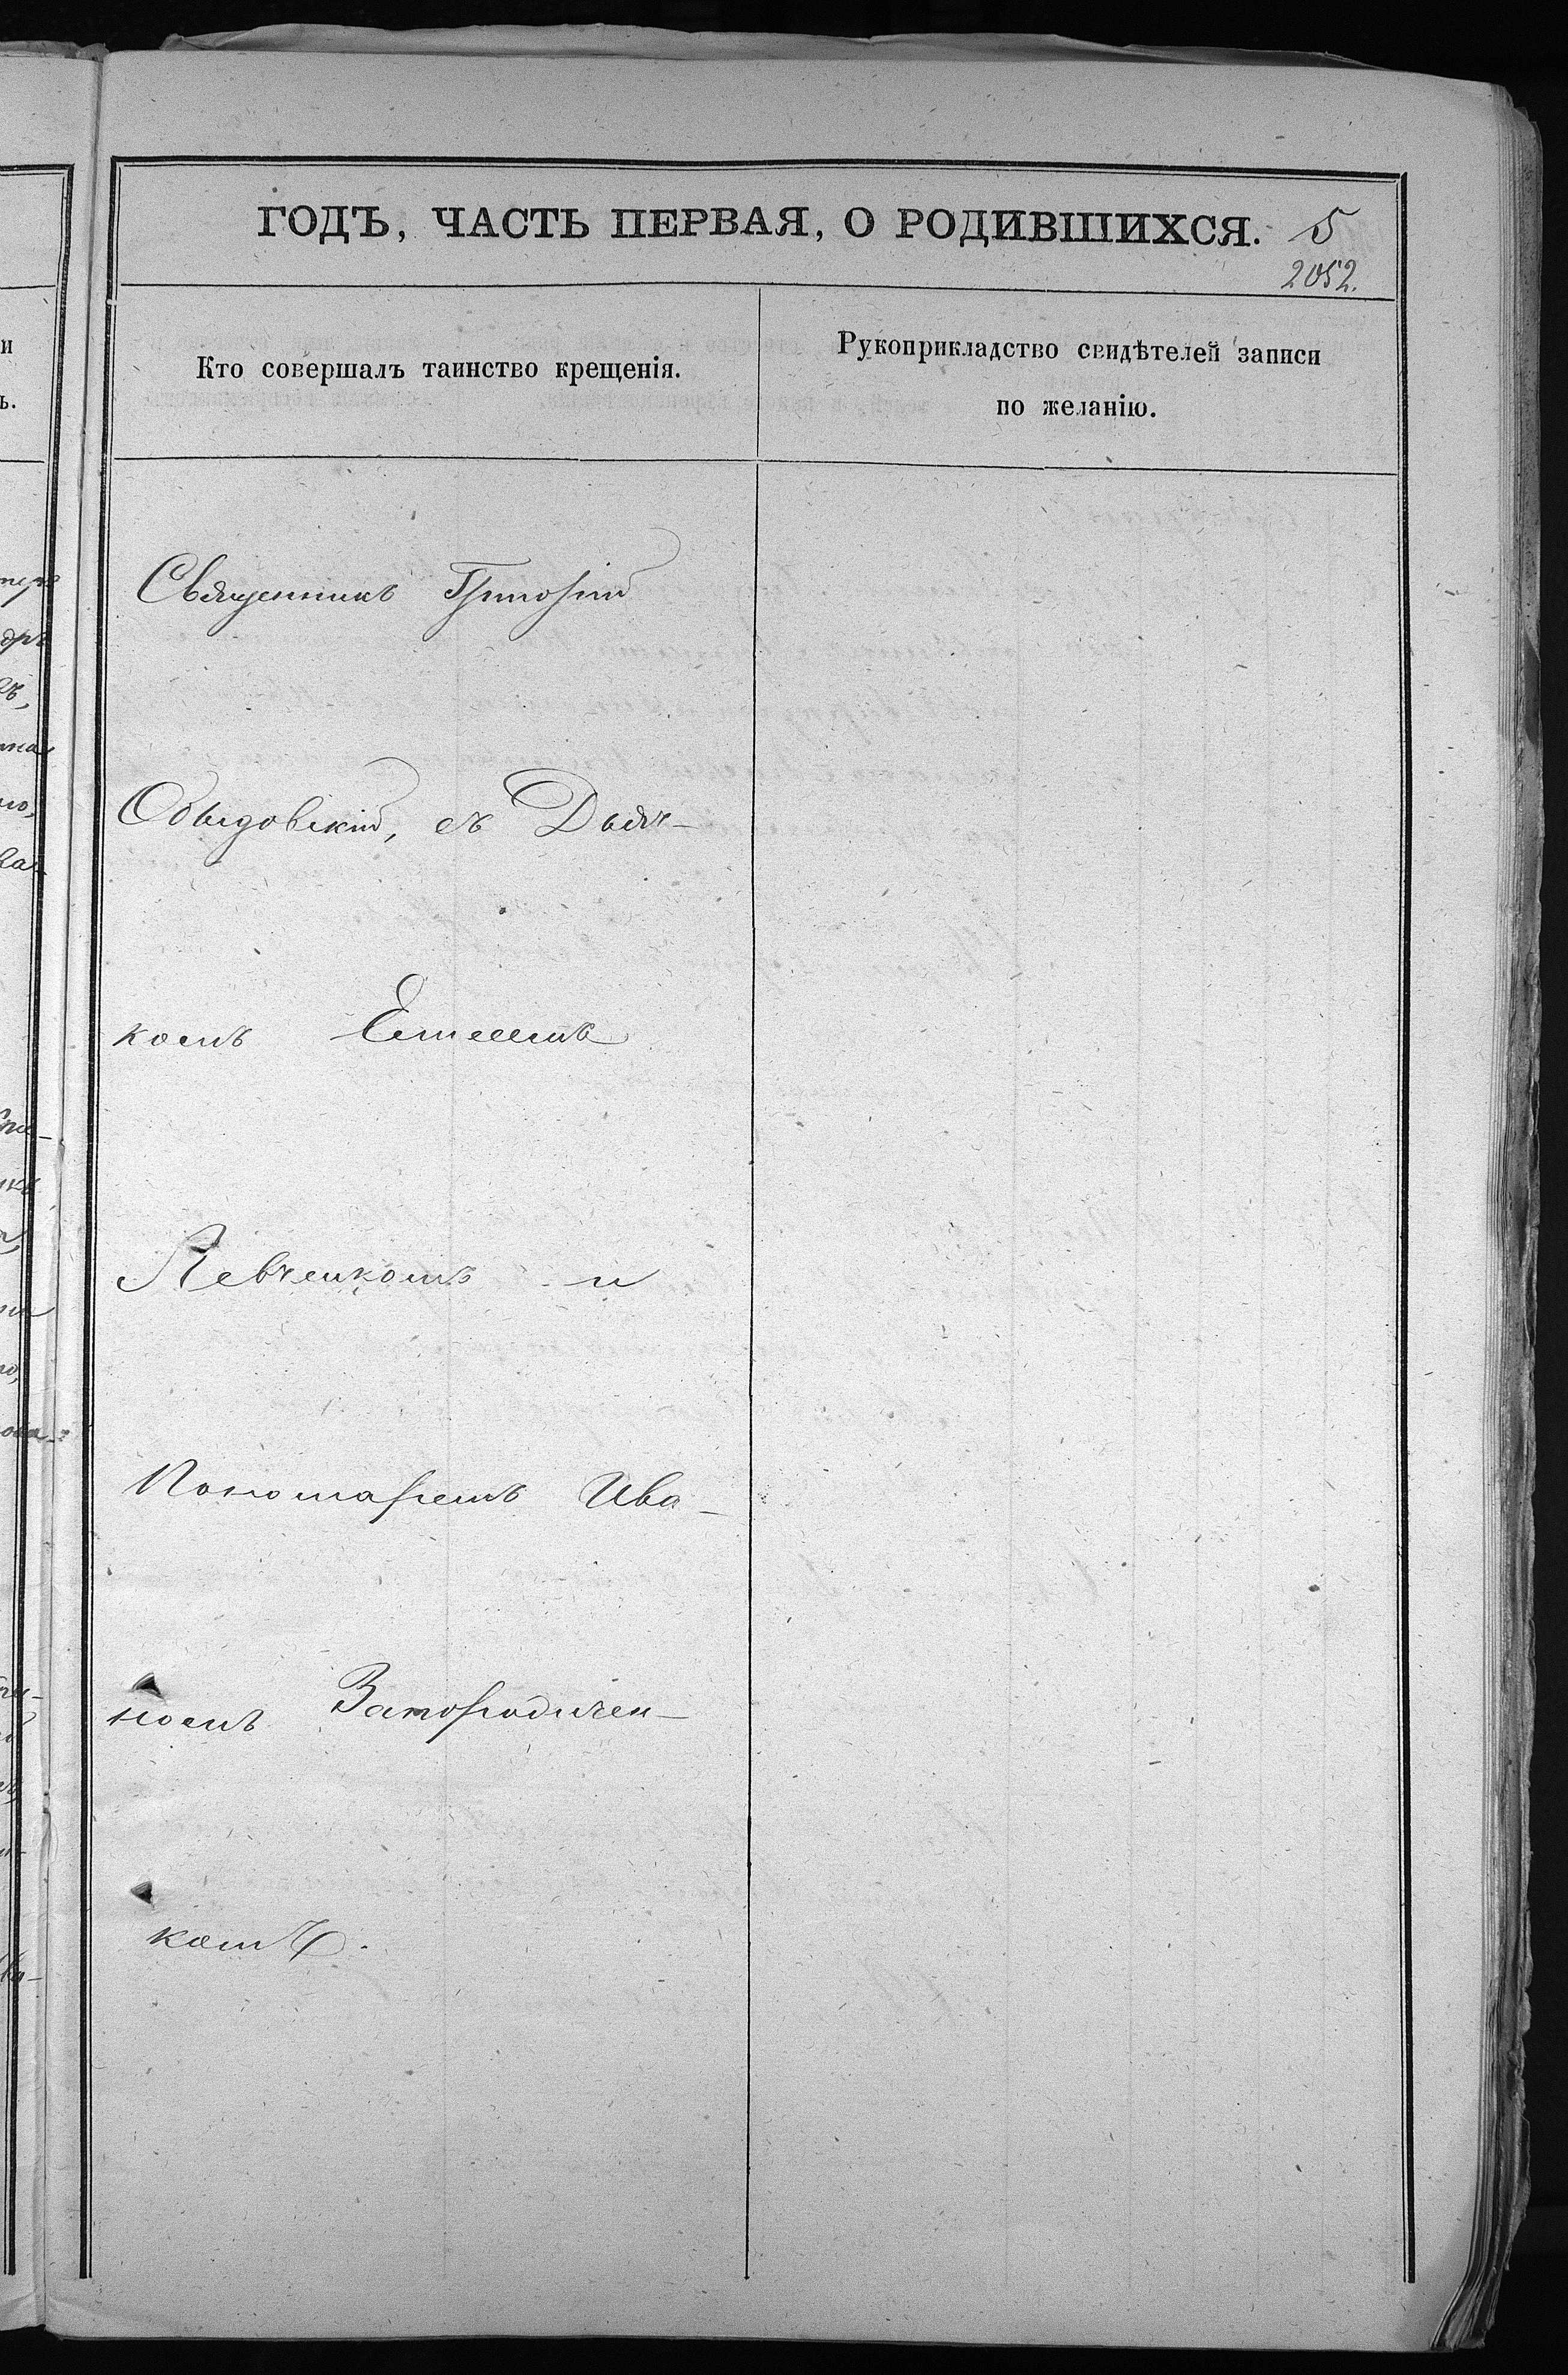 ГОДЪ, ЧАСТЬ ПЕРВАЯ, О РОДИВШИХСЯ. 5
2052.
Кто совершалъ таинство крещенія.
Рукоприкладство свидѣтелей записи
по желанію.
Священникъ Григорій
Обыдовскій, съ Дьяч-
комъ
Левченкомъ и
Пономаремъ Ива-
номъ
комъ.